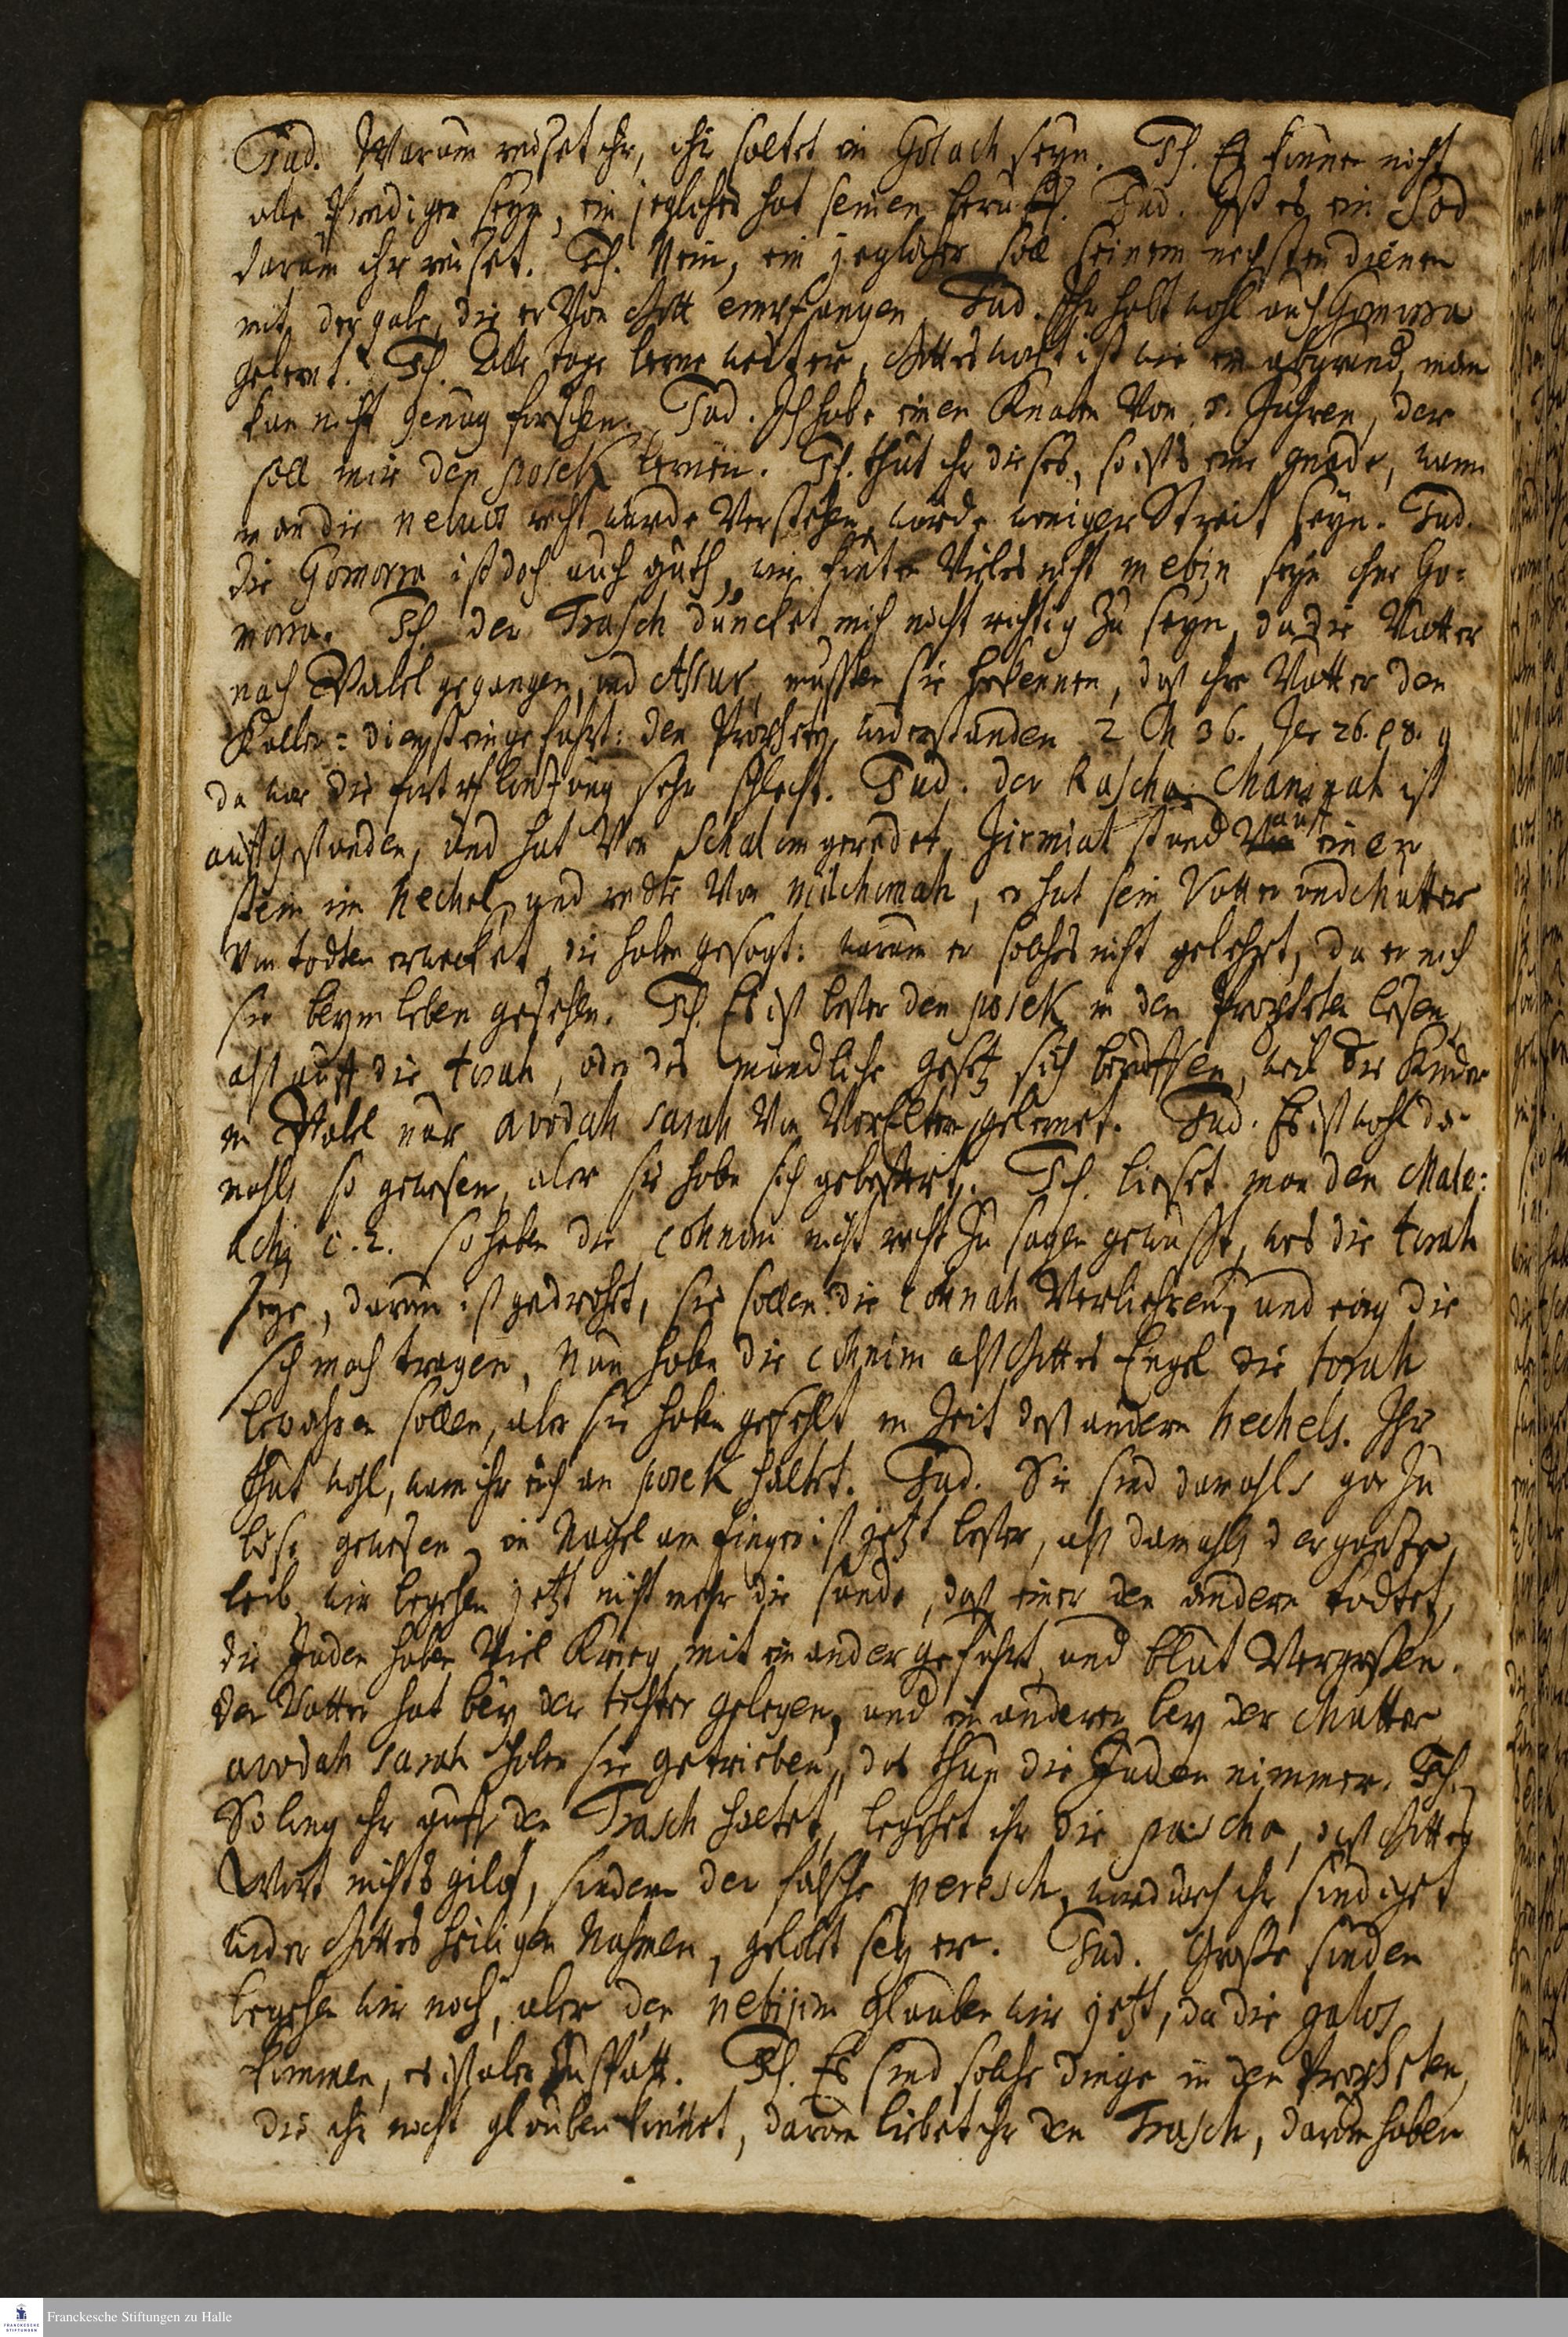 Jud. Warum reiset ihr, ihr soltet ein Golach seyn. Ich. Es können nicht
alle Prediger seyn, ein jeglicher hat seinen beruff. Jud. Ist es ein Sod
darum ihr reiset. Ich. Nein, ein jeglicher soll seinem nechsten dienen
mit der gabe, die er Von Gott empfangen. Jud. Ihr habt wohl auch Gomorra
gelernt. Ich. Alle tage lerne weiter, Gottes wort ist wie ein abgrund, man
kan nicht genug forschen. Jud. Ich habe einen Knaben Von 8. Jahren, der
soll mir den posek lernen. Ich. thut ihr dieses, so ists eine gnade, wann
man die neluos recht würde Verstehen, würde weniger Streit seyn. Jud.
die Gomorra ist doch auch guth, wir könten Vieles nicht mebin seyn ohne Go-
morra. Ich. der Trasch düncket mich nicht richtig zu seyn, da die Vätter
nach Babel gegangen, und Assur, musten sie bekennen, daß ihre Vätter den
Kälber-dienst eingeführt: den Propheten widerstanden 2 Ch 36. Jer 26. Ps.
da war die fortpflantzung sehr schlecht. Jud. der Rascha Chananah ist
auffgestanden, und hat Von Schalom geredet, Jirmiah stund auff einen
stein im hechel, und redte Von milchomah, er hat sein Vatter und Mutter
Von todten erwecket, die haben gesagt: warum er solches nicht gelehrt, da er noch
sie beym leben gesehen. Ich. Es ist beßer den posek in den Propheten lesen,
alß auff die torah, oder das mündliche gesetz sich beruffen, weil die Kinder
in Babel nur avodah sarah Von VorEltern gelernet. Jud. Es ist wohl da-
mahls so gewesen, aber sie haben sich gebeßert. Ich. lieset man den Male-
achj c. 2. so haben die cohnim nicht recht zu sagen gewußt, was die torah
seye, darum ist gedrohet, sie sollen die cohnah Verliehren, und ewig die
schmach tragen, Nun haben die cohnim alß Gottes Engel die torah
bewahren sollen, aber sie haben gefehlt in Zeit deß andern hechels. Ihr
thut wohl, wann ihr euch an posek haltet. Jud. Sie sind damahls gar zu
böse gewesen, ein Nagel am finger ist jetzt beßer, alß damahls der gantze
leib, wir begehen jetzt nicht mehr die sünde, daß einer den andern tödtet,
die Juden haben Viel Krieg mit einander geführt, und blut Vergoßen.
der Vatter hat bey der tochter gelegen, und ein anderer bey der Mutter
avodah sarah haben sie getrieben, das thun die Juden nimmer. Ich.
So lang ihr auff den Trasch haltet, begehet ihr die pascha, daß Gottes
Wort nichts gilt, sondern der falsche peresch, wordurch ihr sündiget
wider Gottes heiligen Nahmen, gelobt sey er. Jud. Große sünden
begehen wir noch, aber den nebijim glauben wir jetzt, da die galus
kommen, es ist aber zu spätt. Ich. Es sind solche dinge in den Propheten,
die ihr nicht glauben könnet, darum liebet ihr den Trasch, darum haben
Franckesche Stiftungen zu Halle